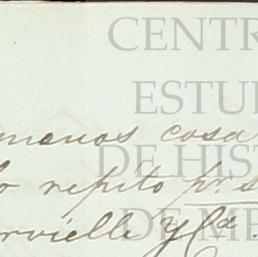 CENTR
ESTU
DE HIST
DE ME
manos cosa
repito pr. s
rvielle y Ca.